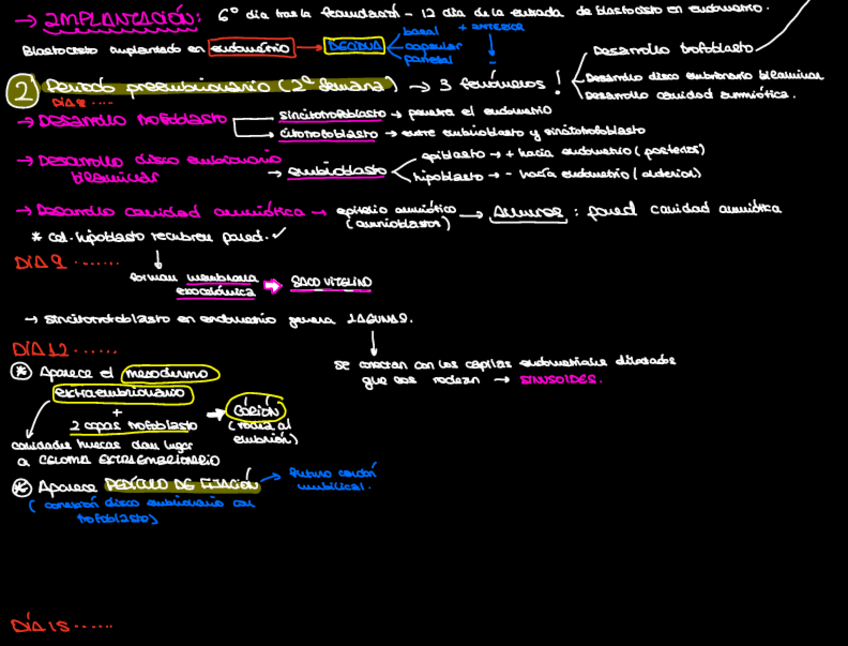 → IMPLANTACIÓN: 6º día tras la fecundación - 12 día de la entrada de blastocisto en endometrio.
Blastocisto implantado en endometrio → DECIDUA
basal + ANTERIOR
capsular
parietal -
② Periodo preembrionario (2ª semana) → 3 fenómenos!
Desarrollo trofoblasto
Desarrollo disco embrionario bilaminar
Desarrollo cavidad amniótica.
DÍA 8 ....
→ Desarrollo trofoblasto
sincitiotrofoblasto → penetra el endometrio
citotrofoblasto → entre embrioblasto y sincitotrofoblasto
→ Desarrollo disco embrionario
bilaminar → embrioblasto
epiblasto → + hacia endometrio (posterior)
hipoblasto → - hacia endometrio (anterior)
→ Desarrollo cavidad amniótica → epitelio amniótico
(amnioblastos) → Amnios : pared cavidad amniótica
* cel. hipoblasto recubren pared. ✓
DÍA 9 .......
forman membrana
exocelómica ⇒ SACO VITELINO
→ sincitiotrofoblasto en endometrio genera LAGUNAS.
se conectan con los capilas endometriales dilatados
que las rodean → SINUSOIDES.
DÍA 12 ......
* Aparece el mesodermo
extraembrionario
+
2 capas trofoblasto → CORIÓN
(rodea al
embrión)
cavidades huecas dan lugar
a CELOMA EXTRAEMBRIONARIO
* Aparece PEDÍCULO DE FIJACIÓN → futuro cordón
umbilical.
(conexión disco embrionario con
trofoblasto)
DÍA 15 ......